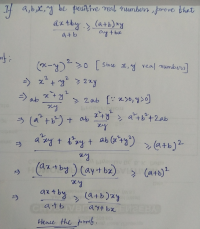 If a,b,x,y be positive real numbers, prove that
(ax+by)/(a+b) ≥ ((a+b)xy)/(ay+bx)
(x-y)² ≥ 0 [Since x,y real numbers]
⇒ x²+y² ≥ 2xy
⇒ ab (x²+y²)/(xy) ≥ 2ab [∵ x>0, y>0]
⇒ (a²+b²) + ab (x²+y²)/(xy) ≥ a²+b²+2ab
⇒ (a²xy + b²xy + ab(x²+y²))/(xy) ≥ (a+b)²
⇒ ((ax+by)(ay+bx))/(xy) ≥ (a+b)²
⇒ (ax+by)/(a+b) ≥ ((a+b)xy)/(ay+bx)
Hence the proof.